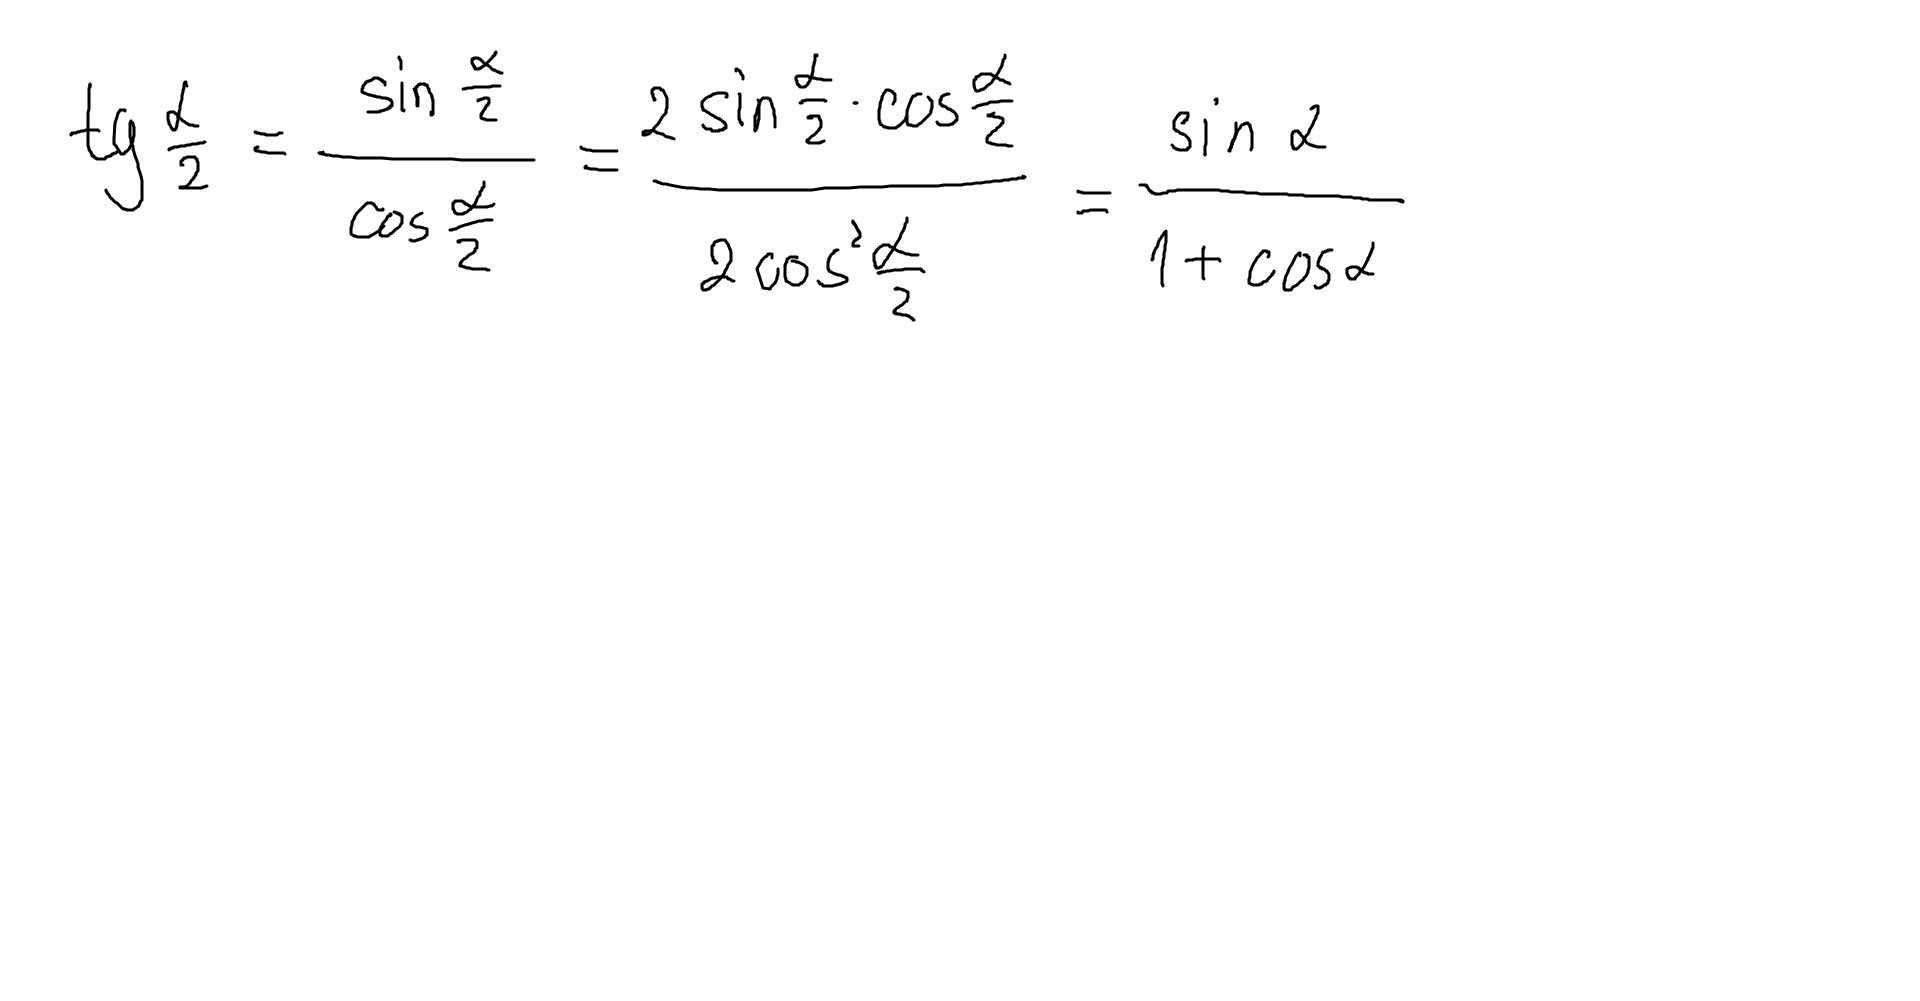 tg α/2 = sin α/2 / cos α/2 = 2 sin α/2 · cos α/2 / 2 cos² α/2 = sin α / 1 + cos α